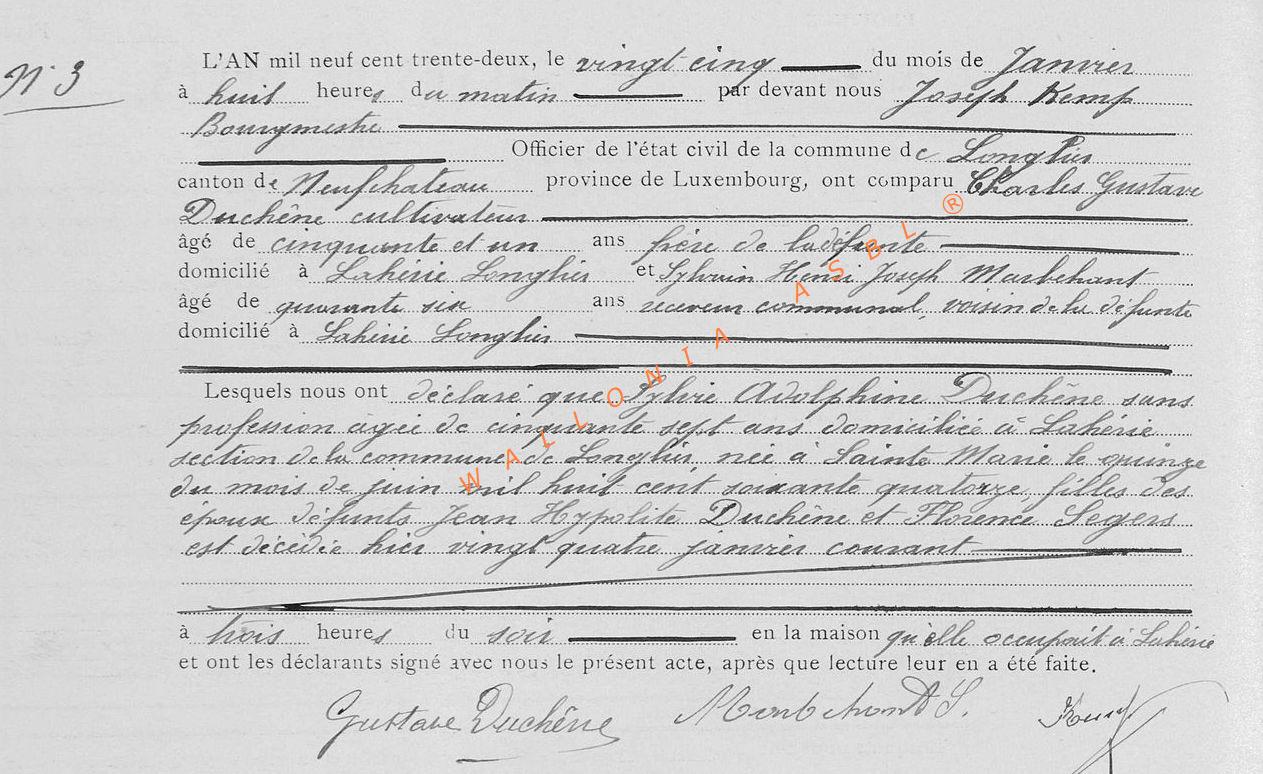 N° 3
L'AN mil neuf cent trente-deux, le vingt cinq du mois de Janvier
à huit heures du matin par devant nous Joseph Kemp
Bourgmestre
Officier de l'état civil de la commune de Longlier
canton de Neufchateau province de Luxembourg, ont comparu Charles Gustave
Duchêne cultivateur
âgé de cinquante et un ans frère de la défunte
domicilié à Lahérie Longlier et Sylvain Henri Joseph Marbehant
âgé de quarante six ans receveur communal voisin de la défunte
domicilié à Lahérie Longlier
Lesquels nous ont déclaré que Sylvie Adolphine Duchêne sans
profession agée de cinquante sept ans domiciliée à Lahérie
section de la commune de Longlier, née à Sainte Marie le quinze
du mois de juin mil huit cent soixante quatorze, filles des
époux défunts Jean Hypolite Duchêne et Florence Segers
est décédée hier vingt quatre janvier courant
à trois heures du soir en la maison qu'elle occupait à Lahérie
et ont les déclarants signé avec nous le présent acte, après que lecture leur en a été faite.
Gustave Duchêne Marbehant S. Kemp
WALLONIA ASBL ®